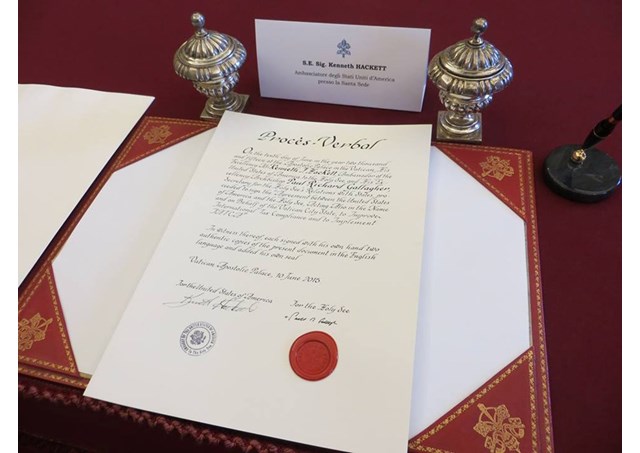 S.E. Sig. Kenneth HACKETT
Ambasciatore degli Stati Uniti d'America
presso la Santa Sede
Procès-Verbal
On the tenth day of June in the year two thousand
and fifteen at the Apostolic Palace in the Vatican, His
Excellency Mr Kenneth F. Hackett, Ambassador of the
United States of America to the Holy See and His Ex
cellency Archbishop Paul Richard Gallagher,
Secretary for the Holy See's Relations with States,
to sign the Agreement between the United States
of America and the Holy See, Acting Also in the Name
and on Behalf of the Vatican City State, to Improve
International Tax Compliance and to Implement
FATCA
In witness thereof each signed with his own hand two
authentic copies of the present document in the English
language and added his own seal
Vatican Apostolic Palace, 10 June 2015
For the United States of America
For the Holy See